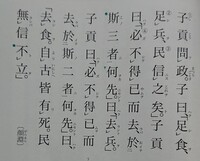 子貢問政。子曰、「足食、
足兵、民信之矣。」子貢
曰、「必不得已而去、於
斯三者何先。」曰、「去兵。」
子貢曰、「必不得已而
去、於斯二者何先。」曰、
「去食。自古皆有死、民
無信不立。」(顔淵)